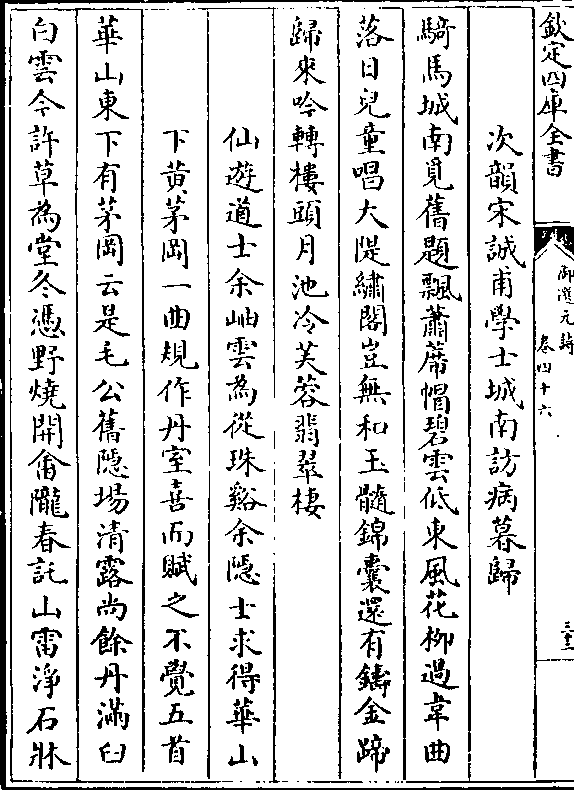 欽定四庫全書
御選元詩
卷四十六
三十三
次韻宋誠甫學士城南訪病暮歸
騎馬城南覓舊題飄蕭蓆帽碧雲低東風花柳過韋曲
落日兒童唱大隄繡閣豈無和玉髓錦囊還有鑄金蹄
歸來吟轉樓頭月池冷芙蓉翡翠棲
仙遊道士余岫雲為從珠谿余隱士求得華山
下黄茅岡一曲規作丹室喜而賦之不覺五首
華山東下有茅岡云是毛公舊隱場清露尚餘丹滿臼
白雲今許草為堂冬憑野燒開畬隴春託山雷淨石牀